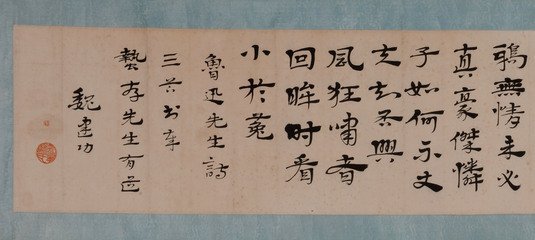 無情未必
真豪傑憐
子如何不丈
夫知否興
風狂嘯者
回眸時看
小於菟
魯迅先生詩
三首書奉
先生有道
魏建功